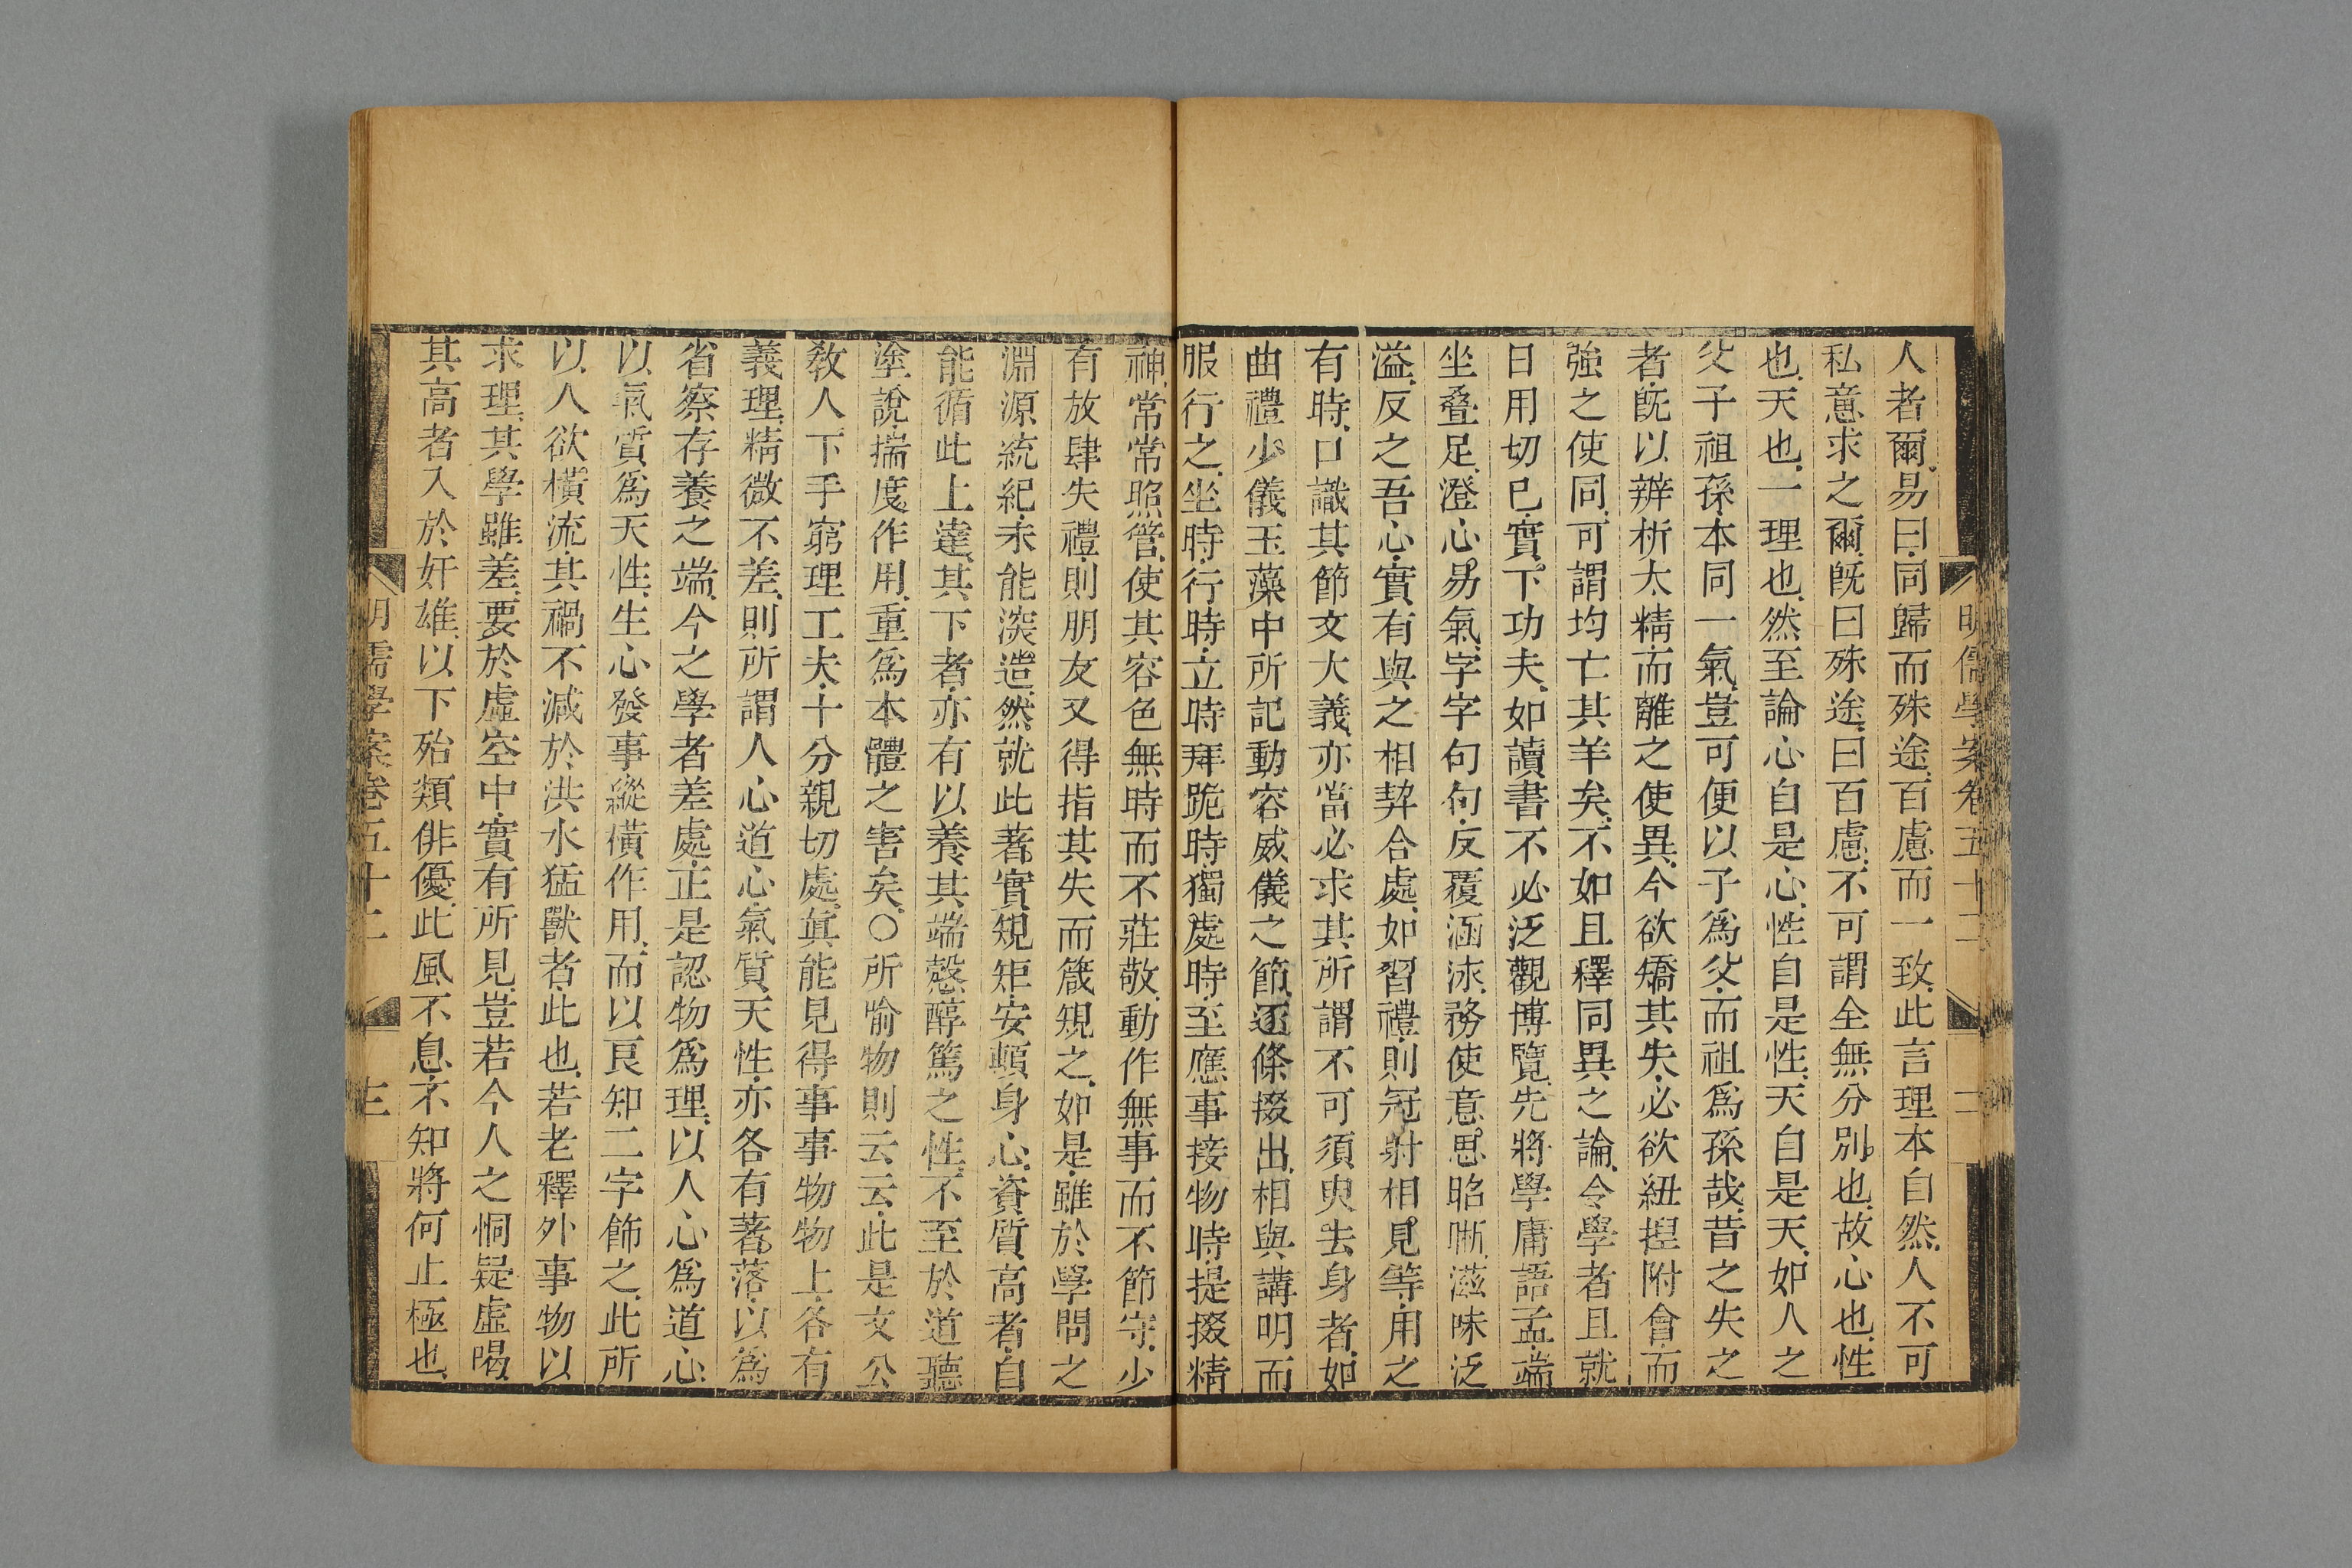 明儒學案卷五十二 二
人者爾易曰同歸而殊途百慮而一致此言理本自然人不可
私意求之爾旣曰殊途曰百慮不可謂全無分別也故心也性
也天也一理也然至論心自是心性自是性天自是天如人之
父子祖孫本同一氣豈可便以子爲父而祖爲孫哉昔之失之
者旣以辨析太精而離之使異今欲矯其失必欲紐捏附會而
強之使同可謂均亡其羊矣不如且釋同異之論令學者且就
日用切已實下功夫如讀書不必泛觀博覽先將學庸語孟端
坐疊足澄心易氣字字句句反覆涵泳務使意思昭晰滋味泛
溢反之吾心實有與之相契合處如習禮則冠射相見等用之
有時口識其節文大義亦當必求其所謂不可須臾去身者如
曲禮少儀玉藻中所記動容威儀之節逐條掇出相與講明而
服行之坐時行時立時拜跪時獨處時至應事接物時提掇精
神常常照管使其容色無時而不莊敬動作無事而不節守少
有放肆失禮則朋友又得指其失而箴規之如是雖於學問之
淵源統紀未能深造然就此著實規矩安頓身心資質高者自
能循此上達其下者亦有以養其端慤醇篤之性不至於道聽
塗說揣度作用重爲本體之害矣○所喻物則云云此是文公
敎人下手窮理工夫十分親切處眞能見得事事物物上各有
義理精微不差則所謂人心道心氣質天性亦各有著落以爲
省察存養之端今之學者差處正是認物爲理以人心爲道心
以氣質爲天性生心發事縱橫作用而以良知二字飾之此所
以人欲橫流其禍不減於洪水猛獸者此也若老釋外事物以
求理其學雖差要於虛空中實有所見豈若今人之恫疑虛喝
其高者入於奸雄以下殆類俳優此風不息不知將何止極也
明儒學案卷五十二 三